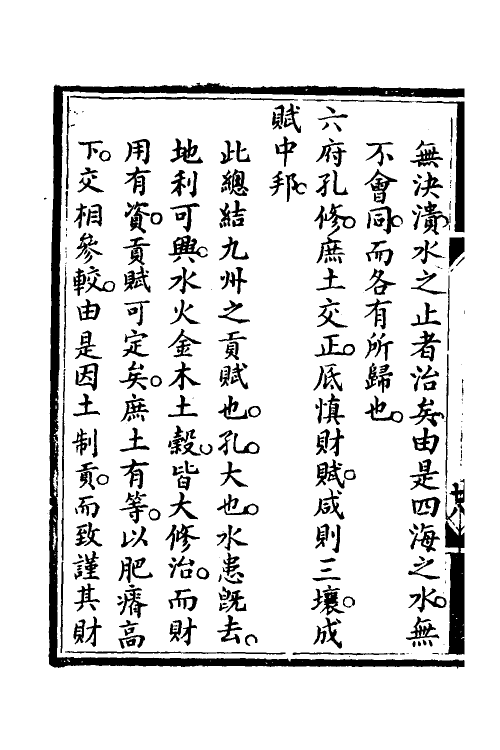 無決潰水之止者治矣由是四海之水無
不會同而各有所歸也
六府孔修庶土交正厎慎財賦咸則三壤成
賦中邦
此總結九州之貢賦也孔大也水患旣去
地利可興水火金木土穀皆大修治而財
用有資貢賦可定矣庶土有等以肥瘠高
下交相參較由是因土制貢而致謹其財